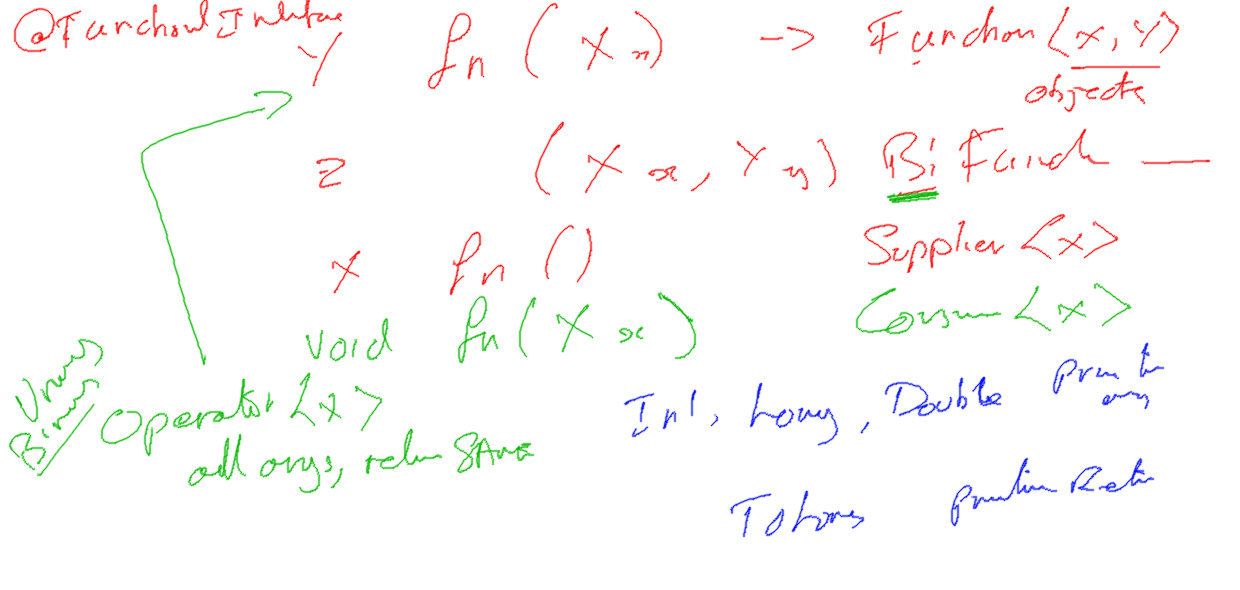 @Functional Interface
Y fn (X x) -> Function <x, Y>
objects
Z (X x, Y y) Bi Funct —
X fn () Supplier <x>
void fn (X x) Consum <x>
Unary
Binary Operator <x>
all args, return SAME
Int, Long, Double Prim
arg
ToLong